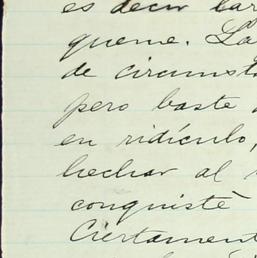 es decir lar
queme. La
de circunst
pero baste
en ridículo,
hechar al
conquisté
Ciertament